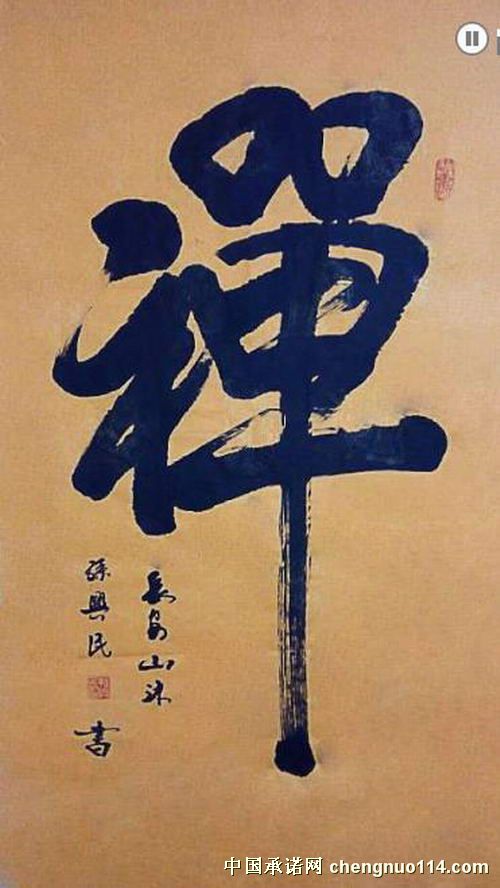 禪
長安山沐
孫興民
書
中国承诺网 chengnuo114.com